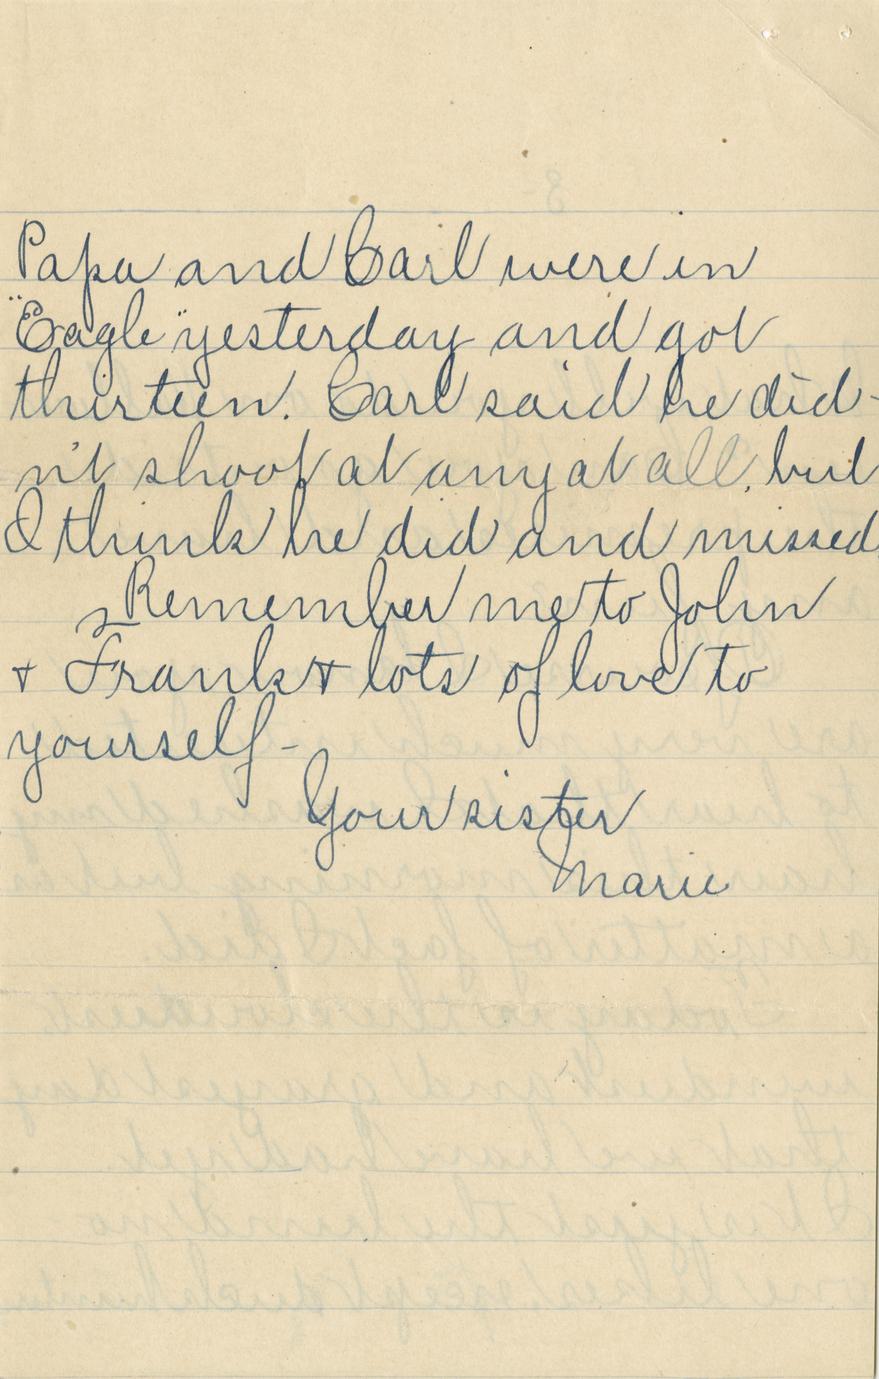 Papa and Carl were in
"Eagle" yesterday and got
thirteen. Carl said he did-
n't shoot at any at all, but
I think he did and missed.
Remember me to John
+ Frank + lots of love to
yourself -
Your sister
Marie